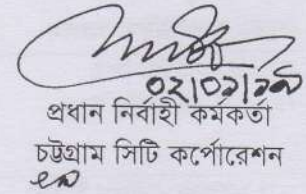 ০২|০১|১৯
প্রধান নির্বাহী কর্মকর্তা
চট্টগ্রাম সিটি কর্পোরেশন